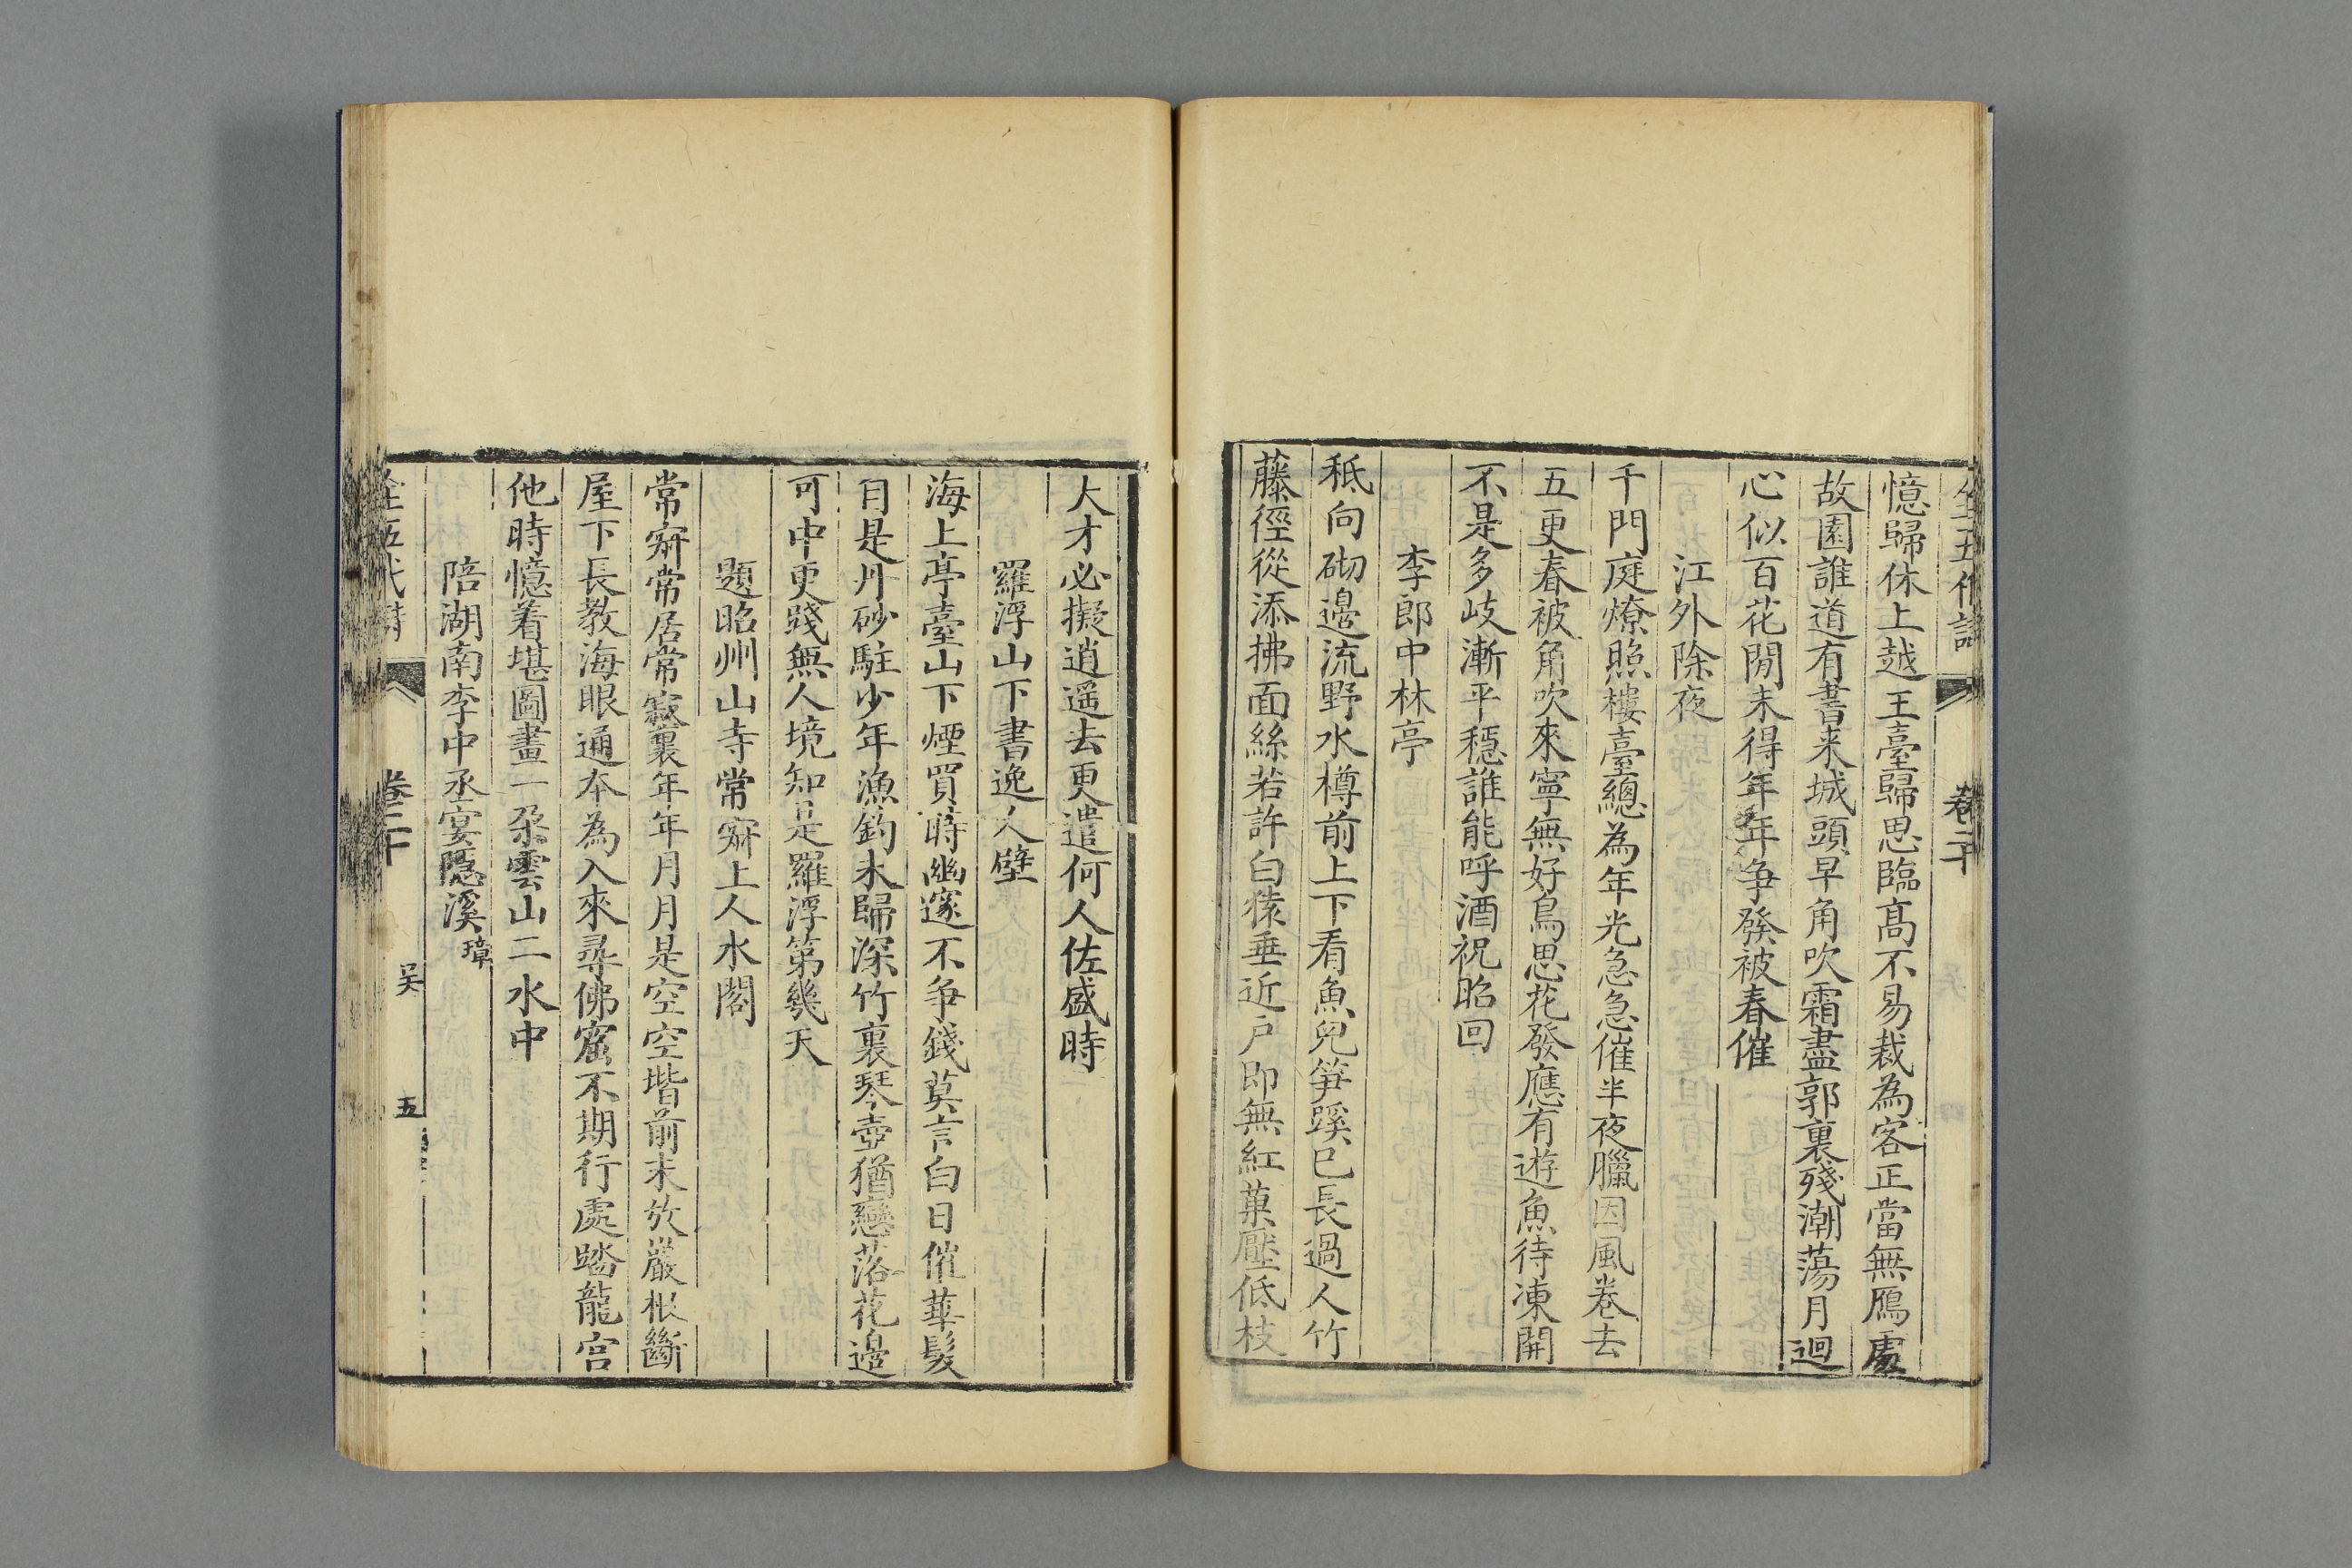 全五代詩 卷二十
憶歸休上越王臺歸思臨高不易裁為客正當無鴈處
故園誰道有書来城頭早角吹霜盡郭裏殘潮蕩月迴
心似百花開未得年年争發被春催
江外除夜
千門庭燎照樓臺總為年光急急催半夜臘因風卷去
五更春被角吹來寧無好鳥思花發應有遊魚待凍開
不是多岐漸平穩誰能呼酒祝昭回
李郎中林亭
秪向砌邊流野水樽前上下看魚兒笋蹊已長過人竹
藤徑從添拂面絲若許白猿垂近户即無紅菓壓低枝
大才必擬逍遥去更遣何人佐盛時
羅浮山下書逸人壁
海上亭臺山下煙買時幽邃不争錢莫言白日催華髮
自是丹砂駐少年漁釣未歸深竹裏琴壺猶戀落花邊
可中更踐無人境知是羅浮第幾天
題昭州山寺常寂上人水閣
常寂常居常寂裏年年月月是空空堦前未放巖根斷
屋下長教海眼通本為入來尋佛窟不期行處踏龍宫
他時憶着堪圖畫一朶雲山二水中
陪湖南李中丞宴隱溪璋
全五代詩 卷二十 吴 五